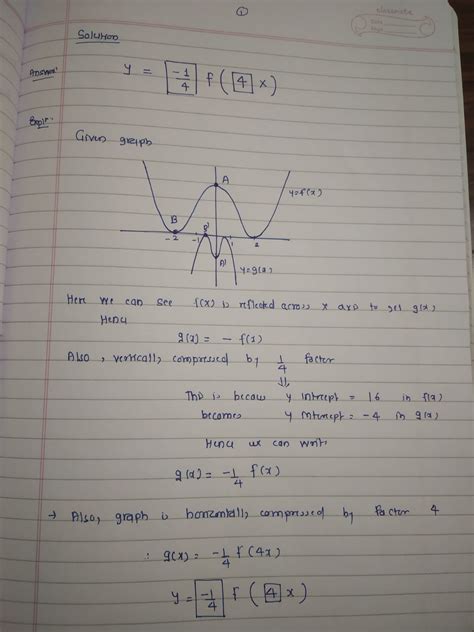 ①
classmate
Date
Page
Solution
Answer:
y = -1/4 f( 4 x)
Expl:
Given graph
A
y=f(x)
B
B'
-2 -1 1 2
A'
y=g(x)
Here we can see f(x) is reflected across x axis to get g(x)
Hence
g(x) = - f(x)
Also, vertically compressed by 1/4 factor
⇓
This is because y intercept = 16 in f(x)
becomes y intercept = -4 in g(x)
Hence we can write
g(x) = -1/4 f(x)
→ Also, graph is horizontally compressed by factor 4
∴ g(x) = -1/4 f(4x)
y = -1/4 f( 4 x)